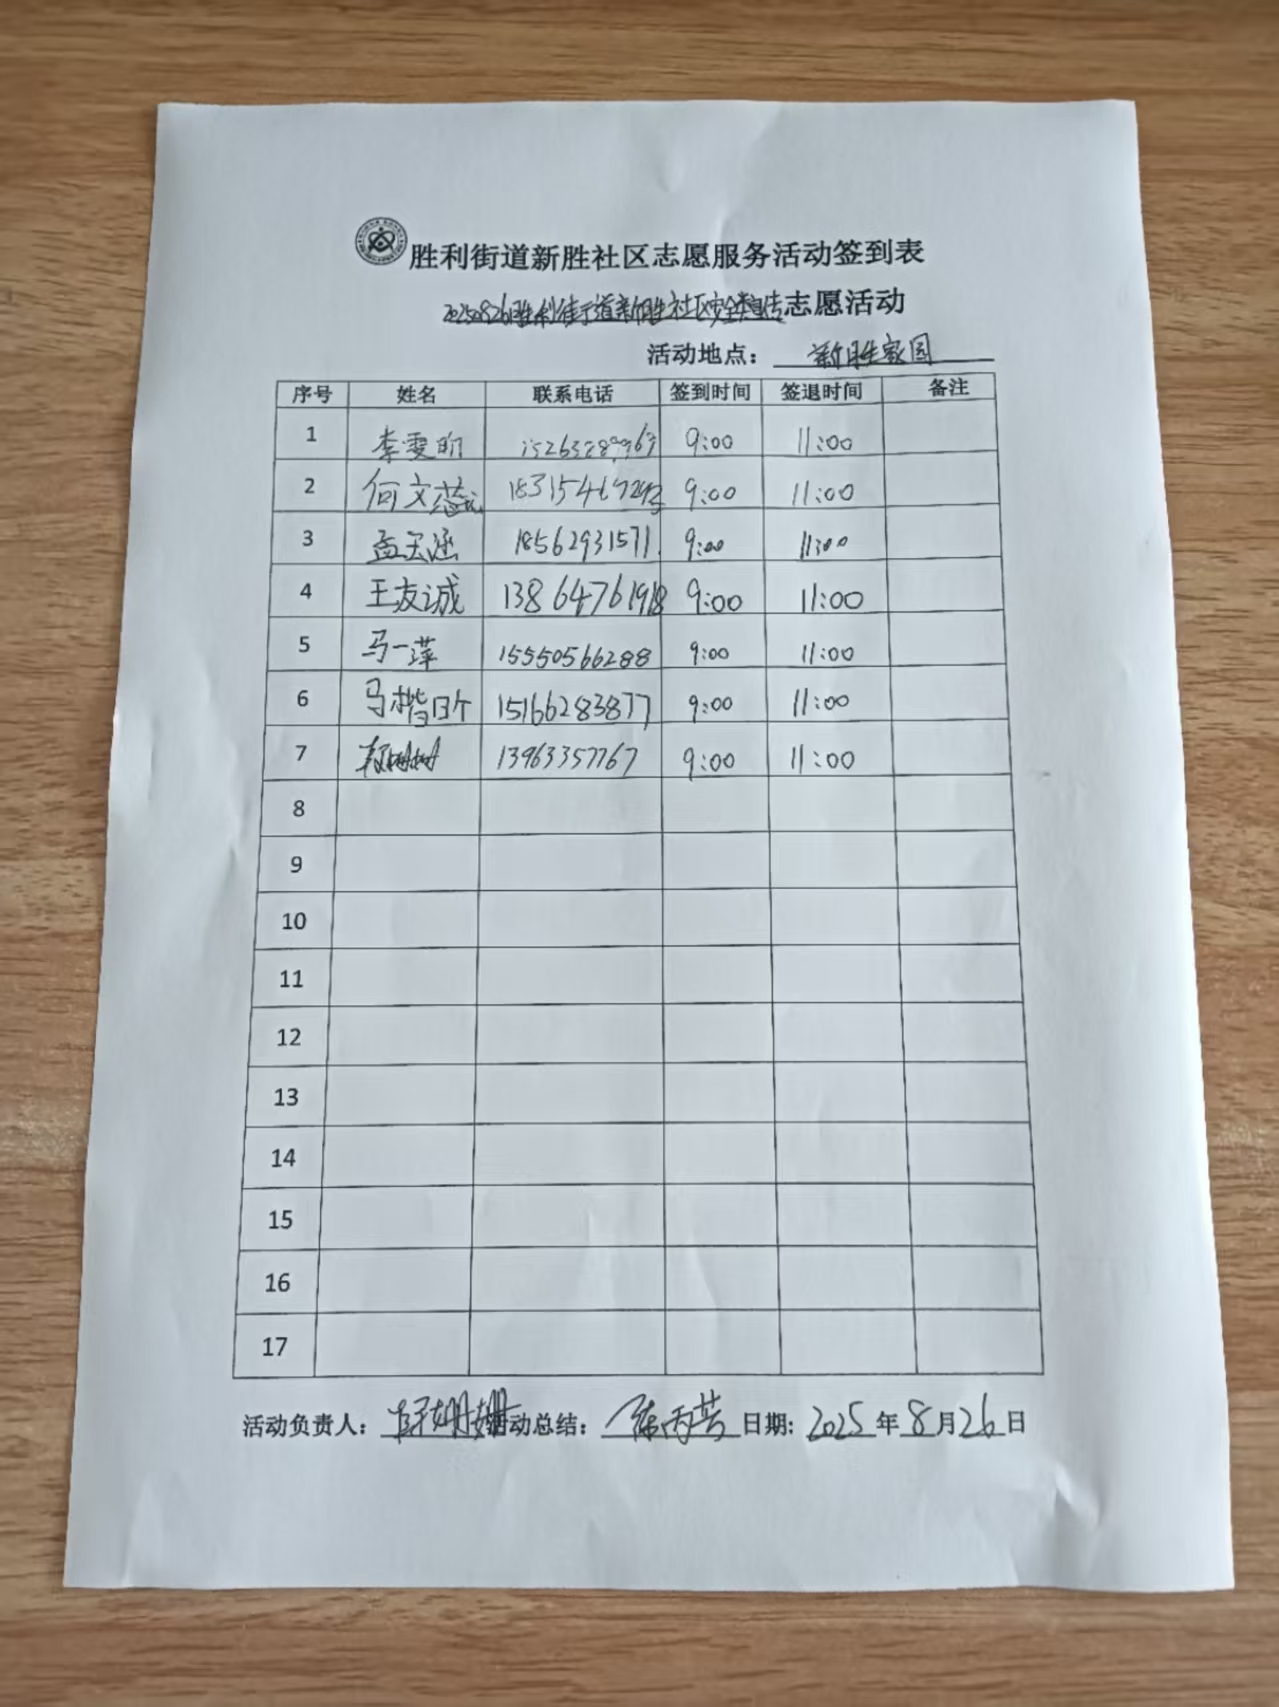 胜利街道新胜社区志愿服务活动签到表
20250826胜利街道新胜社区安全宣传志愿活动
活动地点： 新胜家园
序号 姓名 联系电话 签到时间 签退时间 备注
1 李雯昕 9:00 11:00
2 何文 9:00 11:00
3 孟天涵 18562931571 9:00 11:00
4 王友诚 13864761918 9:00 11:00
5 马一萍 15550566288 9:00 11:00
6 马楷 15166283877 9:00 11:00
7 13963357767 9:00 11:00
8
9
10
11
12
13
14
15
16
17
活动负责人： 活动总结： 陈丙芸 日期: 2025年8月26日